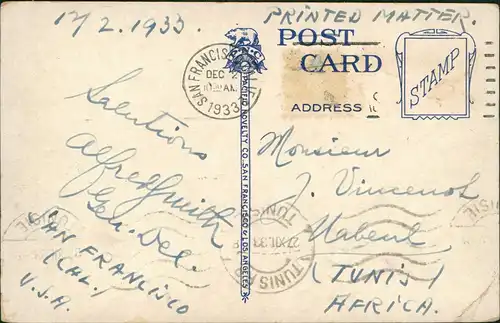 12/2.1933.
PRINTED MATTER.
POST
CARD
ADDRESS
STAMP
SAN FRANCISCO
DEC 2
AM
1933
PACIFIC NOVELTY CO. SAN FRANCISCO & LOS ANGELES
Salutions
Alfred Smith
Gen. Del.
SAN FRANCISCO
(CAL.)
U.S.A.
Monsieur
J. Vincenot
Nabeul
(TUNIS)
AFRICA.
TUNIS
27-XII.33
TUNIS